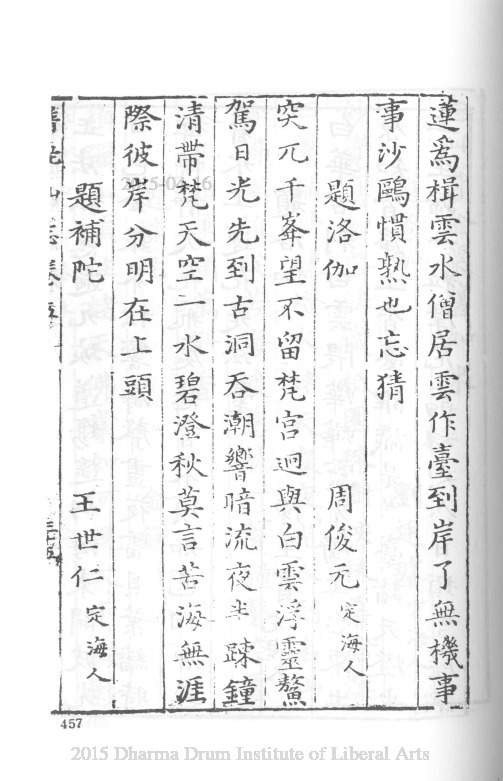 蓮為楫雲水僧居雲作臺到岸了無機事
事沙鷗慣熟也忘猜
題洛伽 周俊元 定海人
突兀千峯望不留梵宫迥與白雲浮靈鰲
駕日光先到古洞吞潮響暗流夜半踈鐘
清帶梵天空一水碧澄秋莫言苦海無涯
際彼岸分明在上頭
題補陀 王世仁 定海人
457
2015-04-16
2015 Dharma Drum Institute of Liberal Arts